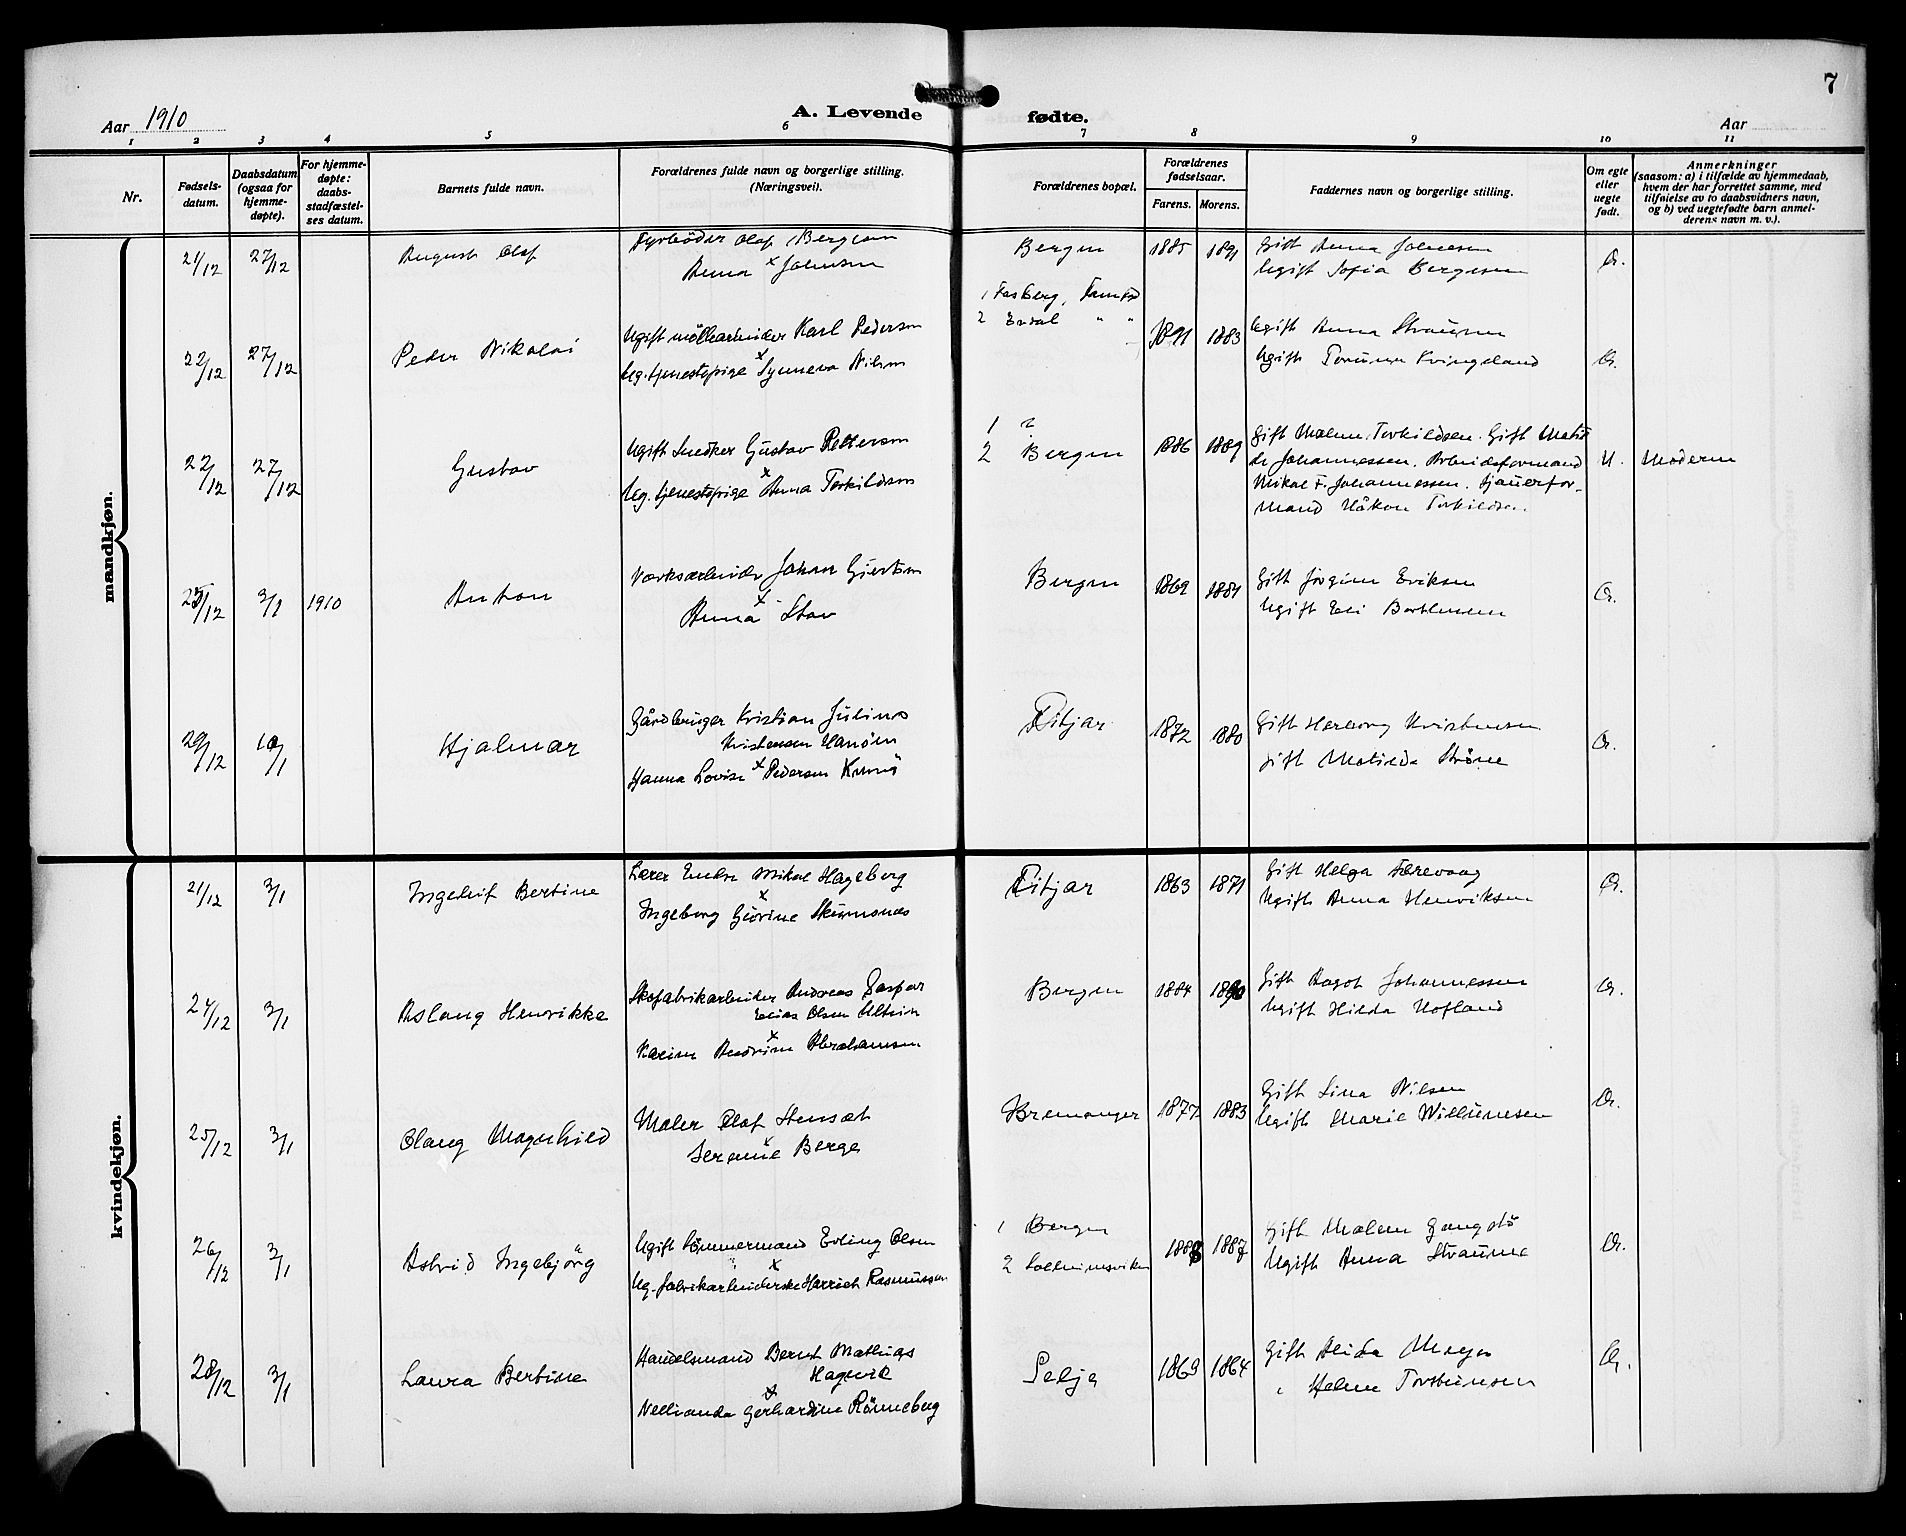 7
Aar 1910
A. Levende fødte.
Aar
1 2 3 4 5 6 7 8 9 10 11
Nr.
Fødsels-
datum.
Daabsdatum
(ogsaa for
hjemme-
døpte).
For hjemme-
døpte:
daabs-
stadfæstel-
ses datum.
Barnets fulde navn.
Forældrenes fulde navn og borgerlige stilling.
(Næringsvei).
Forældrenes bopæl.
Forældrenes
fødselsaar.
Farens. Morens.
Faddernes navn og borgerlige stilling.
Om egte
eller
uegte
født.
Anmerkninger
(saasom: a) i tilfælde av hjemmedaab,
hvem der har forrettet samme, med
tilføielse av to daabsvidners navn,
og b) ved uegtefødte barn anmel-
derens navn m. v.).
mandkjøn.
21/12 27/12 August Olaf
Fyrbøder Olaf Bergesen
Anna x Johnsen
Bergen 1885 1891
Gift Anna Johnesen
Ugift Sofia Bergesen
22/12 27/12 Peder Nikolai
Ugift møllearbeider Karl Pederson
Ug. tjenestepige x Synneva Nilsen
2 Erdal " "
1891 1883
Ugift Anna Straume
Ugift Torunna Kvingeland
22/12 27/12 Gustav
Ugift Snedker Gustav Petterson
Ug. tjenestepige x Anna Torkildsen
1 ?
2 Bergen
1886 1889
Gift Malene Torkildsen. Gift Matil
de Johannessen. Arbeidsformand
Mikal F. Johannessen. Sjauerfor-
mand Håkon Torkildsen.
U. Moderen
25/12 3/1 1910 Anton
Verksarbeider Johan Giertsen
Anna x Stav
Bergen 1869 1881
Gift Jørgine Eriksen
Ugift Eli Bertelsen
29/12 10/1 Hjalmar
Gårdbruger Kristian Julius
Kristensen Hanøen
Hanna Lovise x Pedersen
Fitjar 1872 1880
Gift Hareborg Kristensen
Gift Matilda Strøne
kvindekjøn.
21/12 3/1 Ingebrit Bertine
Lærer Endre Mikal Hageberg
x
Ingeborg Giørine Skumsnes
Fitjar 1863 1871
Gift Helga Færevaag
Ugift Anna Henriksen
24/12 3/1 Aslaug Henrikke
Skofabrikarbeider Andreas Gaspar
Elias Olsen Altein
x
Karine Andrine Abrahamsen
Bergen 1884 1890
Gift Dagot Johannessen
Ugift Hilda Hofland
25/12 3/1 Olaug Magnhild
Maler Olaf Stensæt
x
Serene Berge
Bremanger 1877 1883
Gift Lina Nilsen
Ugift Marie Willumsen
26/12 3/1 Astrid Ingebjörg
Ugift tømmermand Erling Olsen
x
Ug. fabrikarbeiderske Harriet Rasmussen
1 Bergen
2 Solheimsviken
1888 1887
Gift Malene Gangstö
Ugift Anna Straume
28/12 3/1 Laura Bertine
Handelsmand Bernt Mathias
Hagevik
x
Nelianda Gerhardine Rönneberg
Selje 1863 1864
Gift Alida Meyer
" Helene Torstensen